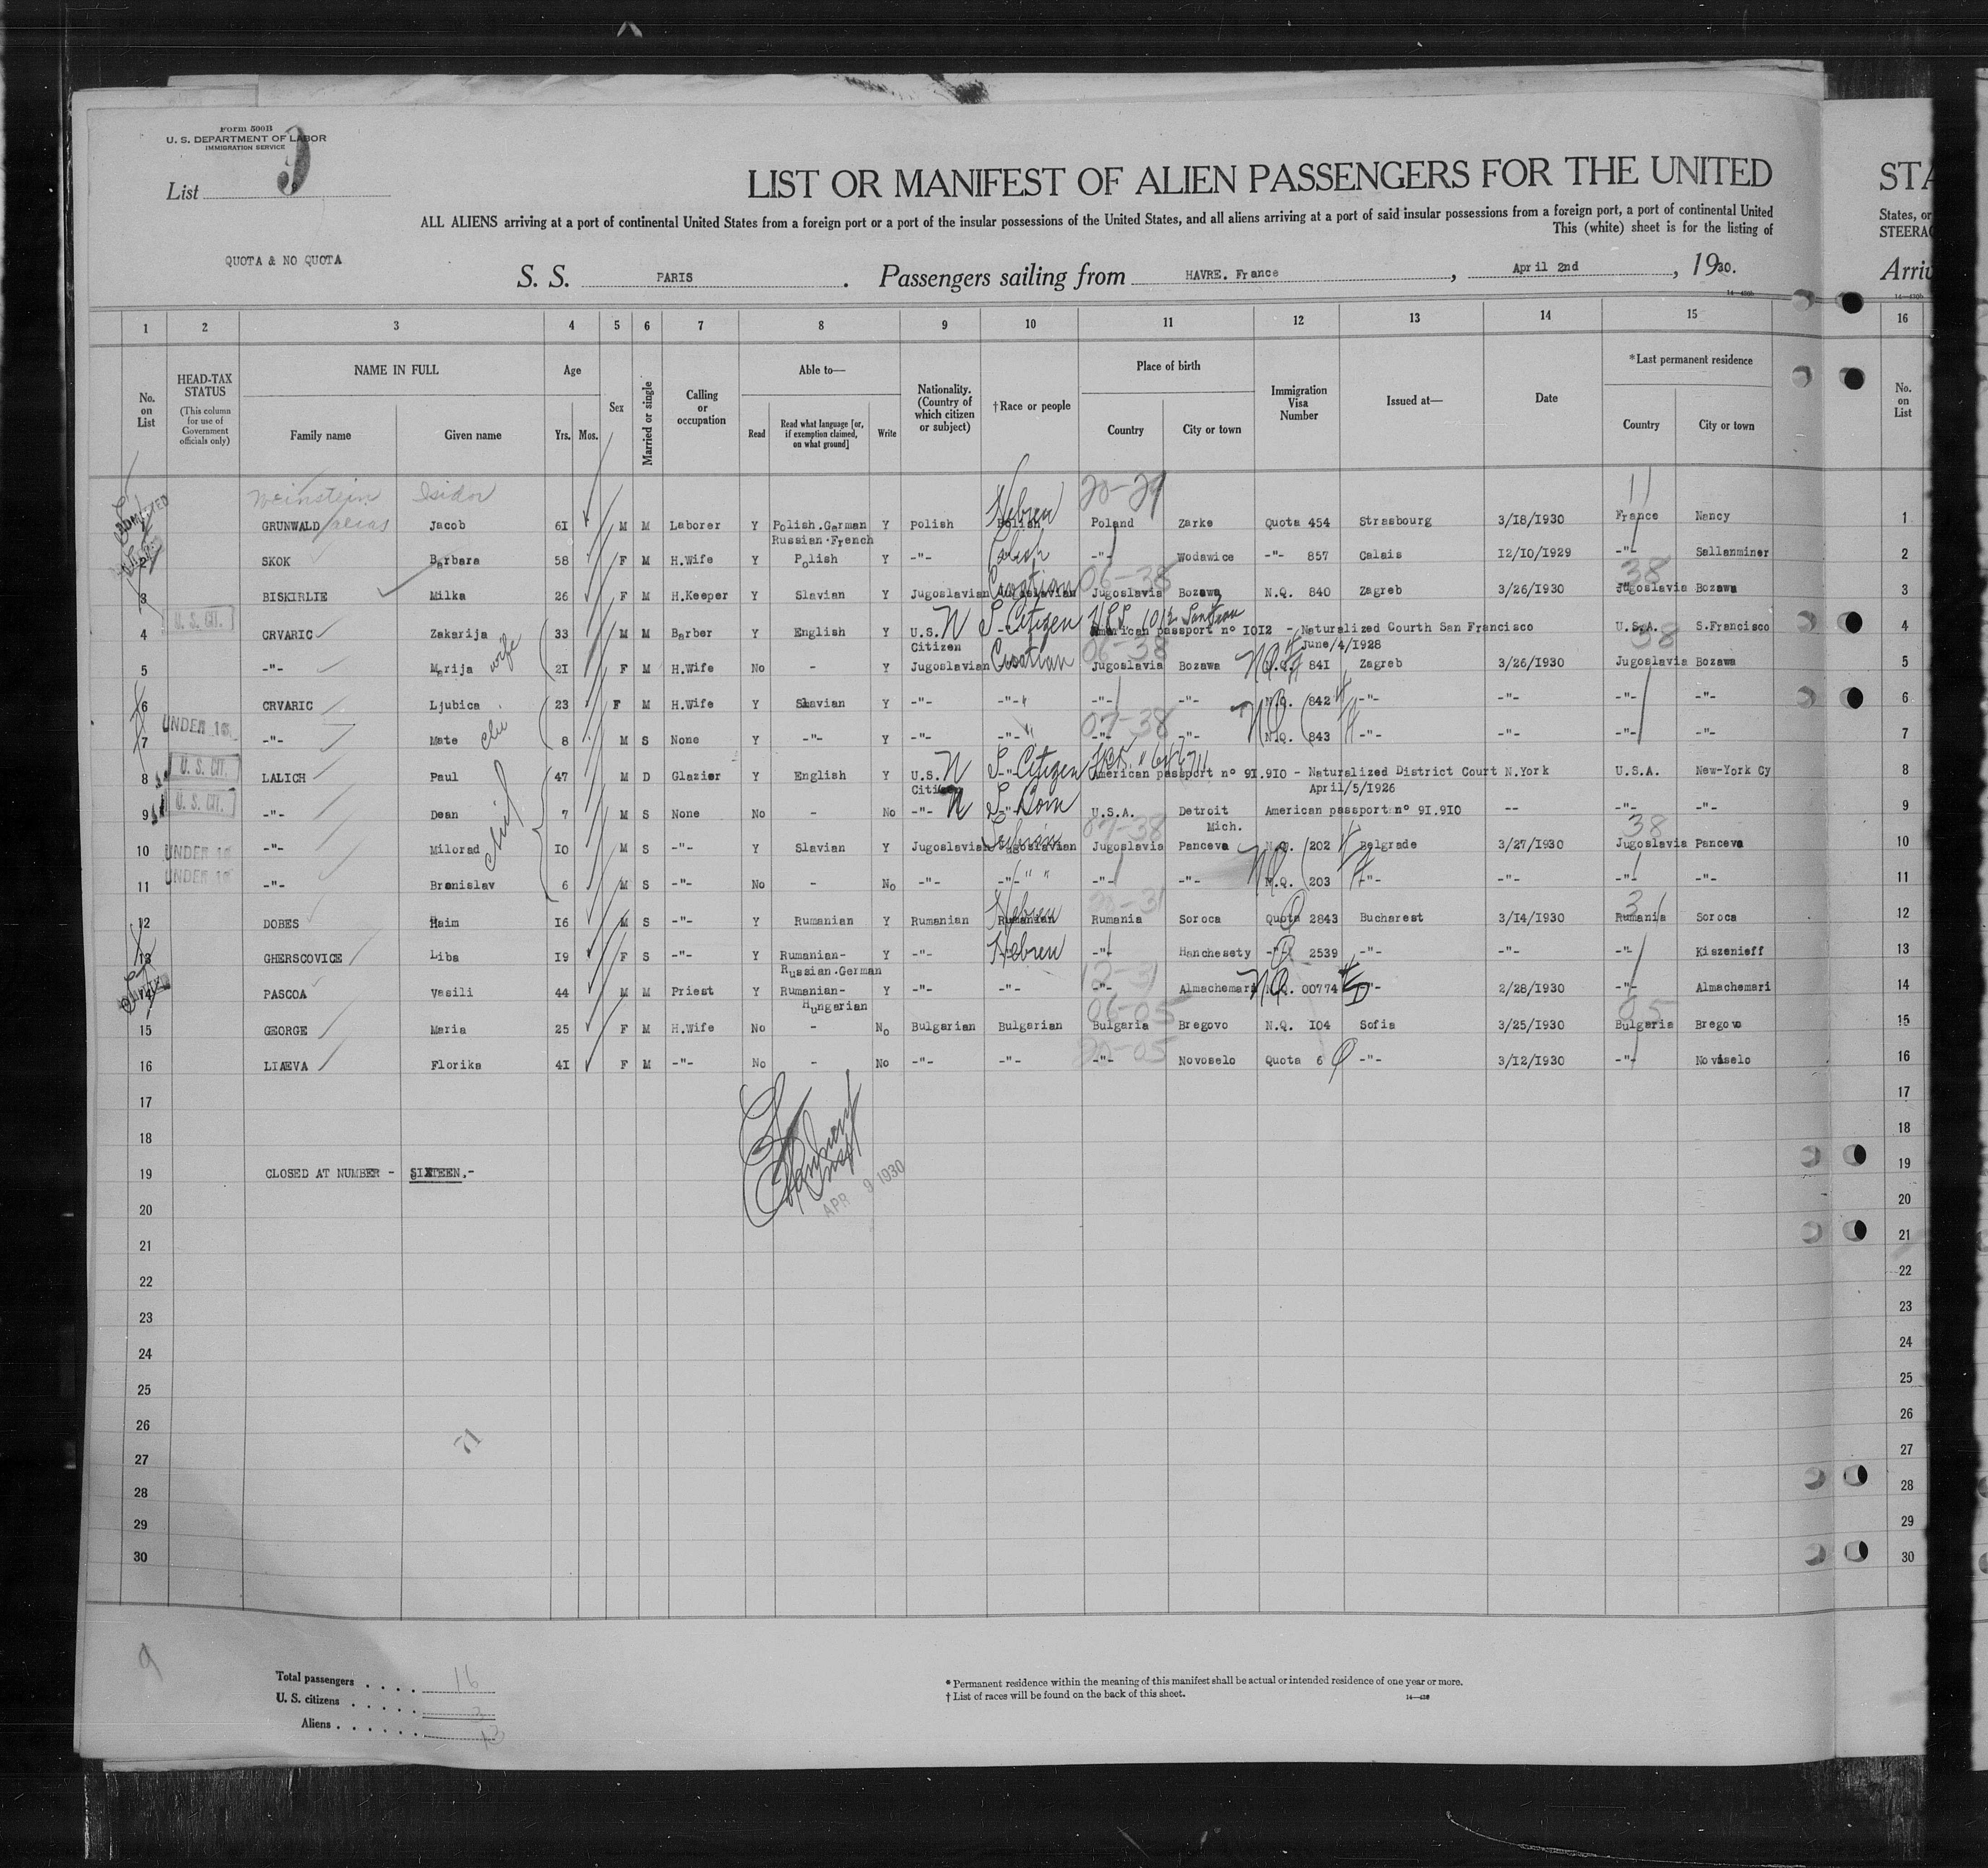 Form 500B
U. S. DEPARTMENT OF LABOR
IMMIGRATION SERVICE
List 9
LIST OR MANIFEST OF ALIEN PASSENGERS FOR THE UNITED
STA
ALL ALIENS arriving at a port of continental United States from a foreign port or a port of the insular possessions of the United States, and all aliens arriving at a port of said insular possessions from a foreign port, a port of continental United
States, or
This (white) sheet is for the listing of
STEERAG
QUOTA & NO QUOTA
S. S. PARIS. Passengers sailing from HAVRE. France, April 2nd, 1930.
Arriv
14—430b
1 2 3 4 5 6 7 8 9 10 11 12 13 14 15 16
No. on List
HEAD-TAX STATUS (This column for use of Government officials only)
NAME IN FULL Family name Given name
Age Yrs. Mos.
Sex
Married or single
Calling or occupation
Able to— Read Read what language [or, if exemption claimed, on what ground] Write
Nationality. (Country of which citizen or subject)
†Race or people
Place of birth Country City or town
Immigration Visa Number
Issued at—
Date
*Last permanent residence Country City or town
No. on List
Weinstein Isidor Hebrew 20-29 11
ADMITTED 1 GRUNWALD alias Jacob 61 M M Laborer Y Polish.German Y Polish Polish Poland Zarke Quota 454 Strasbourg 3/18/1930 France Nancy 1
Russian.French
2 SKOK Barbara 58 F M H.Wife Y Polish Y -"- Polish -"- Wodawice -"- 857 Calais 12/10/1929 -"- Sallanminer 2
Croatian 06-38 38
3 BISKIRLIE Milka 26 F M H.Keeper Y Slavian Y Jugoslavian Jugoslavian Jugoslavia Bozawa N.Q. 840 Zagreb 3/26/1930 Jugoslavia Bozawa 3
U. S. CIT.
4 CRVARIC Zakarija 33 M M Barber Y English Y U.S. N S Citizen American passport nº 1012 - Naturalized Courth San Francisco U.S.A. S.Francisco 4
Citizen June/4/1928
06-38 38
5 -"- Marija wife 21 F M H.Wife No - Y Jugoslavian Croatian Jugoslavia Bozawa N.Q. 841 Zagreb 3/26/1930 Jugoslavia Bozawa 5
6 CRVARIC Ljubica 23 F M H.Wife Y Slavian Y -"- -"- -"- -"- N.Q. 842 -"- -"- -"- -"- 6
UNDER 16 07-38
7 -"- Mate 8 M S None Y -"- Y -"- -"- -"- -"- N.Q. 843 -"- -"- -"- -"- 7
U. S. CIT.
8 LALICH Paul 47 M D Glazier Y English Y U.S. N S Citizen American passport nº 91.910 - Naturalized District Court N.York U.S.A. New-York Cy 8
Citizen April/5/1926
U. S. CIT.
9 -"- Dean 7 M S None No - No -"- N S Born U.S.A. Detroit American passport nº 91.910 -- -"- -"- 9
Mich.
07-38 38
10 UNDER 16 -"- Milorad 10 M S -"- Y Slavian Y Jugoslavian Jugoslavian Jugoslavia Panceva N.Q. 202 Belgrade 3/27/1930 Jugoslavia Panceva 10
11 UNDER 16 -"- Branislav 6 M S -"- No - No -"- -"- -"- -"- N.Q. 203 -"- -"- -"- -"- 11
Hebrew 20-31 31
12 DOBES Haim 16 M S -"- Y Rumanian Y Rumanian Rumanian Rumania Soroca Quota 2843 Bucharest 3/14/1930 Rumania Soroca 12
13 GHERSCOVICE Liba 19 F S -"- Y Rumanian- Y -"- Hebrew -"- Hanchesety -"- 2539 -"- -"- -"- Kiszenieff 13
Russian.German
12-31
14 PASCOA Vasili 44 M M Priest Y Rumanian- Y -"- -"- Almachemari N.Q. 00774 -"- 2/28/1930 -"- Almachemari 14
Hungarian
06-05 05
15 GEORGE Maria 25 F M H.Wife No - No Bulgarian Bulgarian Bulgaria Bregovo N.Q. 104 Sofia 3/25/1930 Bulgaria Bregovo 15
20-05
16 LIAEVA Florika 41 F M -"- No - No -"- -"- -"- Novoselo Quota 6 -"- 3/12/1930 -"- Noviselo 16
17 17
18 18
19 CLOSED AT NUMBER - SIXTEEN.- 19
APR 9 1930
20 20
21 21
22 22
23 23
24 24
25 25
26 26
71
27 27
28 28
29 29
30 30
9
Total passengers . . . . 16
U. S. citizens . . . . . . 3
Aliens . . . . . . 13
* Permanent residence within the meaning of this manifest shall be actual or intended residence of one year or more.
† List of races will be found on the back of this sheet.
14—430